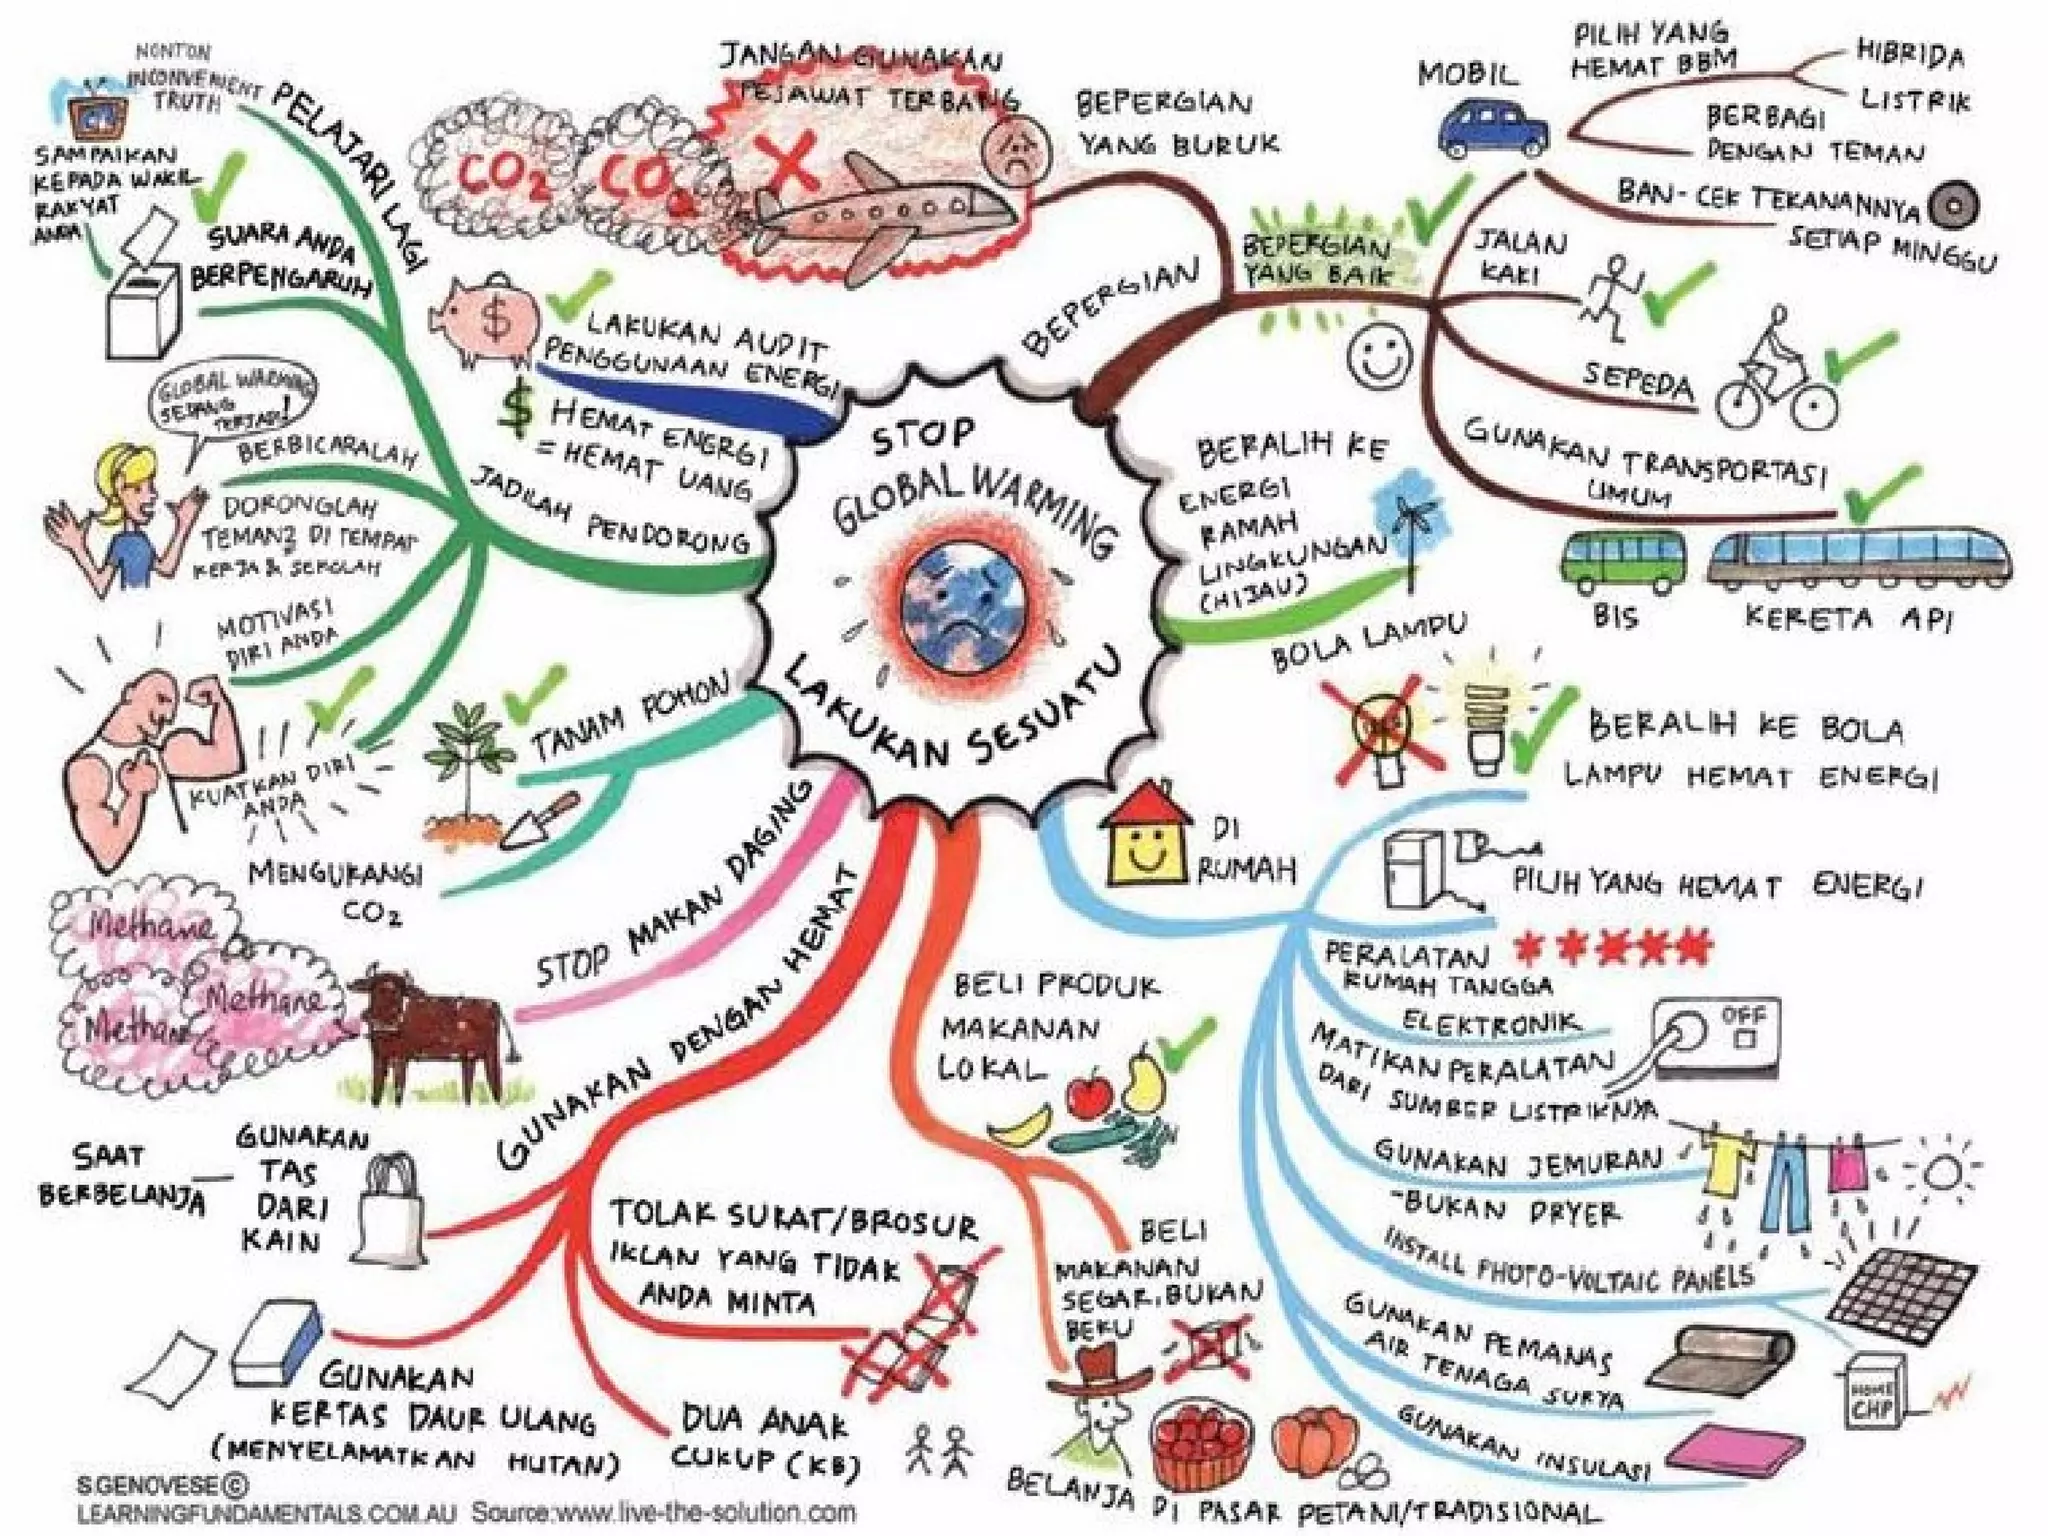 STOP
GLOBAL WARMING
LAKUKAN SESUATU
BEPERGIAN
BEPERGIAN
YANG BURUK
JANGAN GUNAKAN
PESAWAT TERBANG
CO2
CO2
BEPERGIAN
YANG BAIK
MOBIL
PILIH YANG
HEMAT BBM
HIBRIDA
LISTRIK
BERBAGI
DENGAN TEMAN
BAN- CEK TEKANANNYA
SETIAP MINGGU
JALAN
KAKI
SEPEDA
GUNAKAN TRANSPORTASI
UMUM
BIS
KERETA API
BERALIH KE
ENERGI
RAMAH
LINGKUNGAN
(HIJAU)
BOLA LAMPU
BERALIH KE BOLA
LAMPU HEMAT ENERGI
DI
RUMAH
PILIH YANG HEMAT ENERGI
PERALATAN
RUMAH TANGGA
ELEKTRONIK
MATIKAN PERALATAN
DARI SUMBER LISTRIKNYA
OFF
GUNAKAN JEMURAN
-BUKAN DRYER
INSTALL PHOTO-VOLTAIC PANELS
HOME
CHP
GUNAKAN PEMANAS
AIR TENAGA SURYA
GUNAKAN INSULASI
BELI PRODUK
MAKANAN
LOKAL
BELI
MAKANAN
SEGAR, BUKAN
BEKU
BELANJA DI PASAR PETANI/TRADISIONAL
GUNAKAN DENGAN HEMAT
SAAT
BERBELANJA
GUNAKAN
TAS
DARI
KAIN
TOLAK SURAT/BROSUR
IKLAN YANG TIDAK
ANDA MINTA
GUNAKAN
KERTAS DAUR ULANG
(MENYELAMATKAN HUTAN)
DUA ANAK
CUKUP (KB)
STOP MAKAN DAGING
Methane
Methane
Methane
TANAM POHON
MENGURANGI
CO2
JADILAH PENDORONG
PELAJARI LAGI
NONTON
INCONVENIENT
TRUTH
SAMPAIKAN
KEPADA WAKIL
RAKYAT
ANDA
SUARA ANDA
BERPENGARUH
GLOBAL WARMING
SEDANG
TERJADI!
BERBICARALAH
DORONGLAH
TEMAN2 DI TEMPAT
KERJA & SEKOLAH
MOTIVASI
DIRI ANDA
KUATKAN DIRI
ANDA
$
LAKUKAN AUDIT
PENGGUNAAN ENERGI
$ HEMAT ENERGI
= HEMAT UANG
S.GENOVESE ©
LEARNINGFUNDAMENTALS.COM.AU Source:www.live-the-solution.com